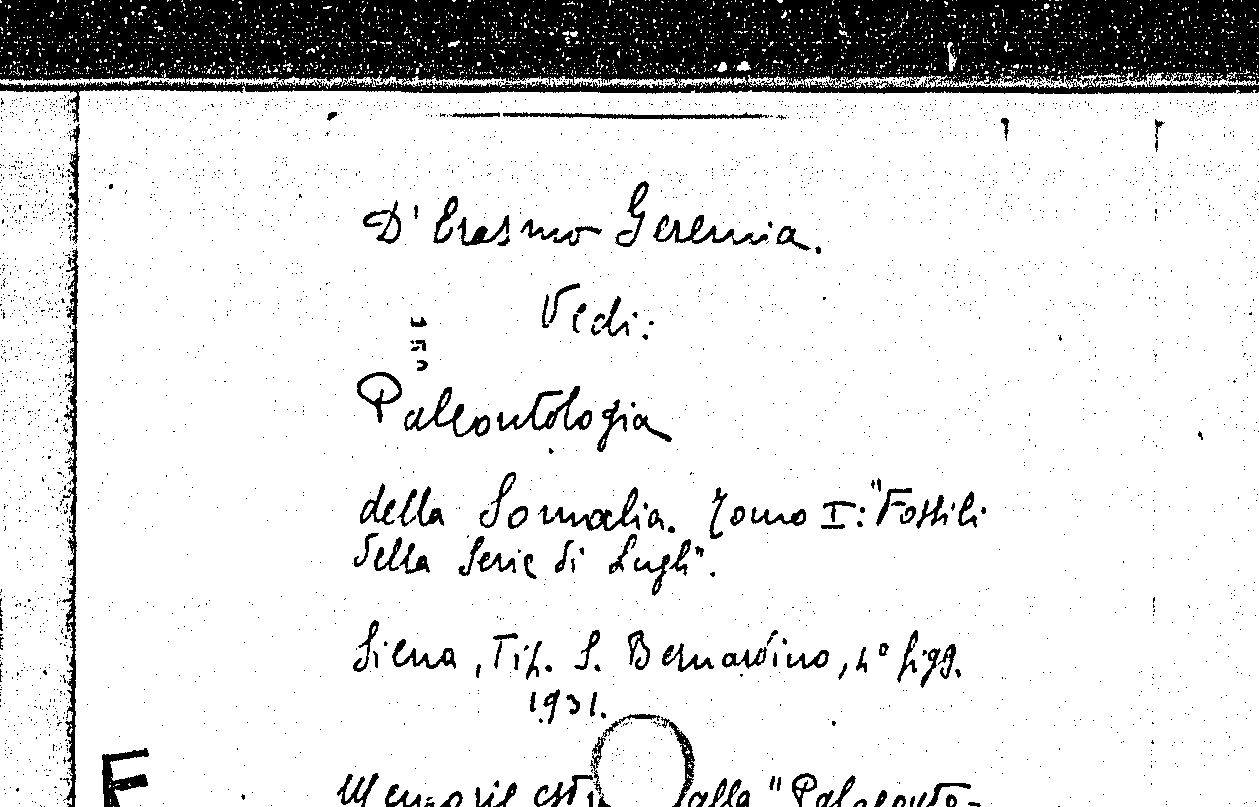 D'Erasmo Geremia.
Vedi:
Paleontologia
della Somalia. Tomo I: "Fossili
della Serie di Lugh".
Siena, Tip. S. Bernardino, 4° figg.
1931.
F
Memorie dalla "Palaeonto-